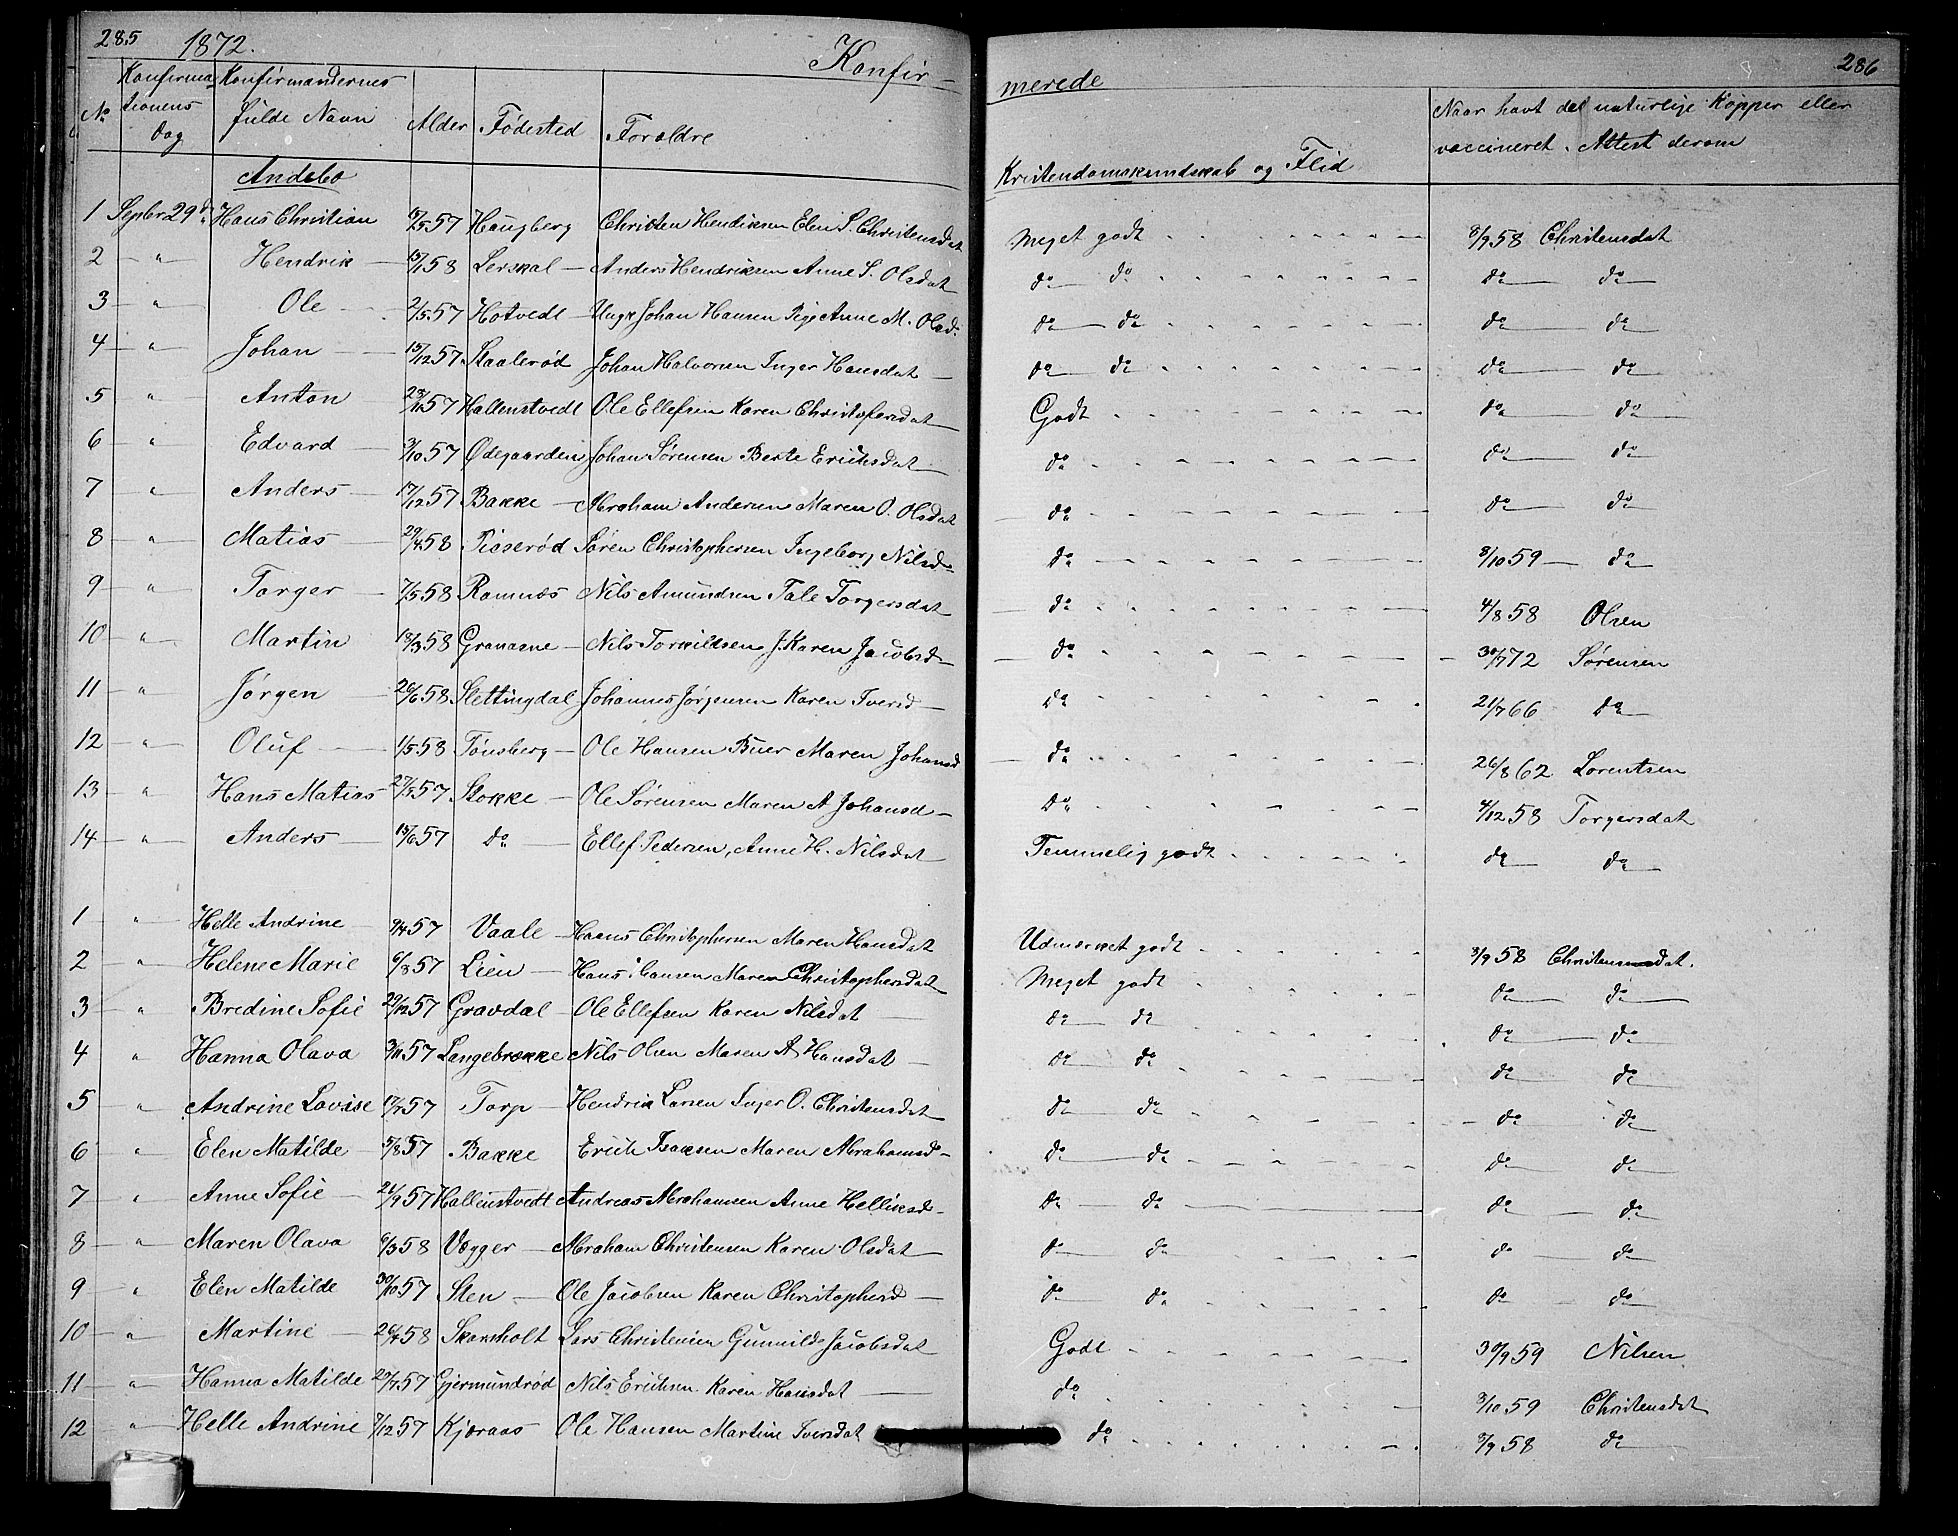 285 1872. Konfir- merede 286
No Konfirmationens Dag Konfirmandernes fulde Navn Alder Fødested Forældre Kristendomskundskab og Flid Naar havt de naturlige Kopper eller vaccineret. Attest derom
Andebo
1 Septbr 29de Hans Christian 18/5 57 Haugberg Christen Hendriksen Elen S. Christensdat Meget godt 8/9 58 Christensdat
2 " Hendrik 15/1 58 Lerskal Anders Hendriksen Anne S. Olsdat do do do do
3 " Ole 2/5 57 Hotvedt Ungk Johan Hansen Pige Anne M. Olsd. do do do do
4 " Johan 15/12 57 Staalerød Johan Halvorsen Inger Hansdat do do do do
5 " Anton 29/11 57 Hallenstvedt Ole Ellefsen Karen Christofersdat Godt do do
6 " Edvard 3/10 57 Ødegaarden Johan Sørensen Berte Erichsdat do do do
7 " Anders 17/12 57 Bakke Abraham Andersen Maren O. Olsdat do do do
8 " Matias 29/4 58 Pisserød Søren Christophersen Ingeborg Nilsd do 8/10 59 do
9 " Torger 7/5 58 Ramnæs Nils Amundsen Tale Torgersdat do 4/8 58 Olsen
10 " Martin 18/3 58 Granasne Nils Torkildsen J. Karen Jacobsd do 30/7 72 Sørensen
11 " Jørgen 26/6 58 Slettingdal Johannes Jørgensen Karen Iversd do 21/7 66 do
12 " Oluf 1/5 58 Tønsberg Ole Hansen Buer Maren Johansd do 26/8 62 Lorentsen
13 " Hans Matias 27/5 57 Stokke Ole Sørensen Maren A Johansd do 4/12 58 Torgersdat
14 " Anders 15/6 57 do Ellef Pedersen, Anne H. Nilsdat Temmelig godt do do
1 " Helle Andrine 9/4 57 Vaale Hans Christophersen Maren Hansdat Udmærket godt 8/9 58 Christensdat.
2 " Helene Marie 6/8 57 Lien Hans Hansen Maren Christophersdat Meget godt do do
3 " Bredine Sofie 29/12 57 Gravdal Ole Ellefsen Karen Nilsdat do do do do
4 " Hanna Olava 3/11 57 Langebrække Nils Olsen Maren A Hansdat do do do do
5 " Andrine Lovise 17/7 57 Torp Hendrik Larsen Inger O. Christensdat do do do do
6 " Elen Matilde 5/8 57 Bakke Erich Isaksen Maren Abrahamsd do do do do
7 " Anne Sofie 21/9 57 Hallenstvedt Andreas Abrahamsen Anne Helliksd do do do do
8 " Maren Olava 6/3 58 Vægger Abraham Christensen Karen Olsdat do do do do
9 " Elen Matilde 30/10 57 Sten Ole Jacobsen Karen Christophersd do do do do
10 " Martine 26/4 58 Skorsholt Lars Christensen Gunnild Jacobsdat Godt 30/9 59 Nilsen
11 " Hanna Matilde 29/7 57 Gjermundrød Nils Erichsen Karen Hansdat do 3/10 59 Christensdat
12 " Helle Andrine 7/12 57 Kjæraas Ole Hansen Martine Iversdat do 8/9 58 do